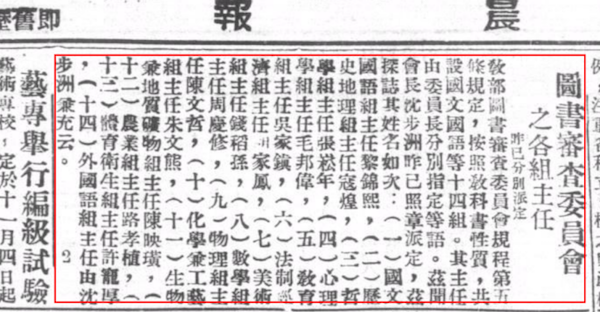 晨報
即舊歷
圖書審查委員會
之各組主任
昨已分別派定
敎部圖書審查委員會規程第五
條規定,按照敎科書性質,共
設國文國語等十四組。其主任
由委員長分別指定等語。茲聞
會長沈步洲昨已照章派定,茲
探誌其姓名如次:(一)國文
國語組主任黎錦熙,(二)歷
史地理組主任寇煌,(三)哲
學組主任張崧年,(四)心理
學組主任毛邦偉,(五)敎育
組主任吳家鎮,(六)法制經
濟組主任家鳳,(七)美術
組主任錢稻孫,(八)數學組
主任周慶修,(九)物理組主
任陳文哲,(十)化學兼工藝
組主任朱文熊,(十一)生物
兼地質礦物組主任陳映璜,(
十二)農業組主任路孝植,(
十三)體育衛生組主任許寵厚
,(十四)外國語組主任由沈
步洲兼充云。 2
藝專舉行編級試驗
藝術專校,定於十一月四日起